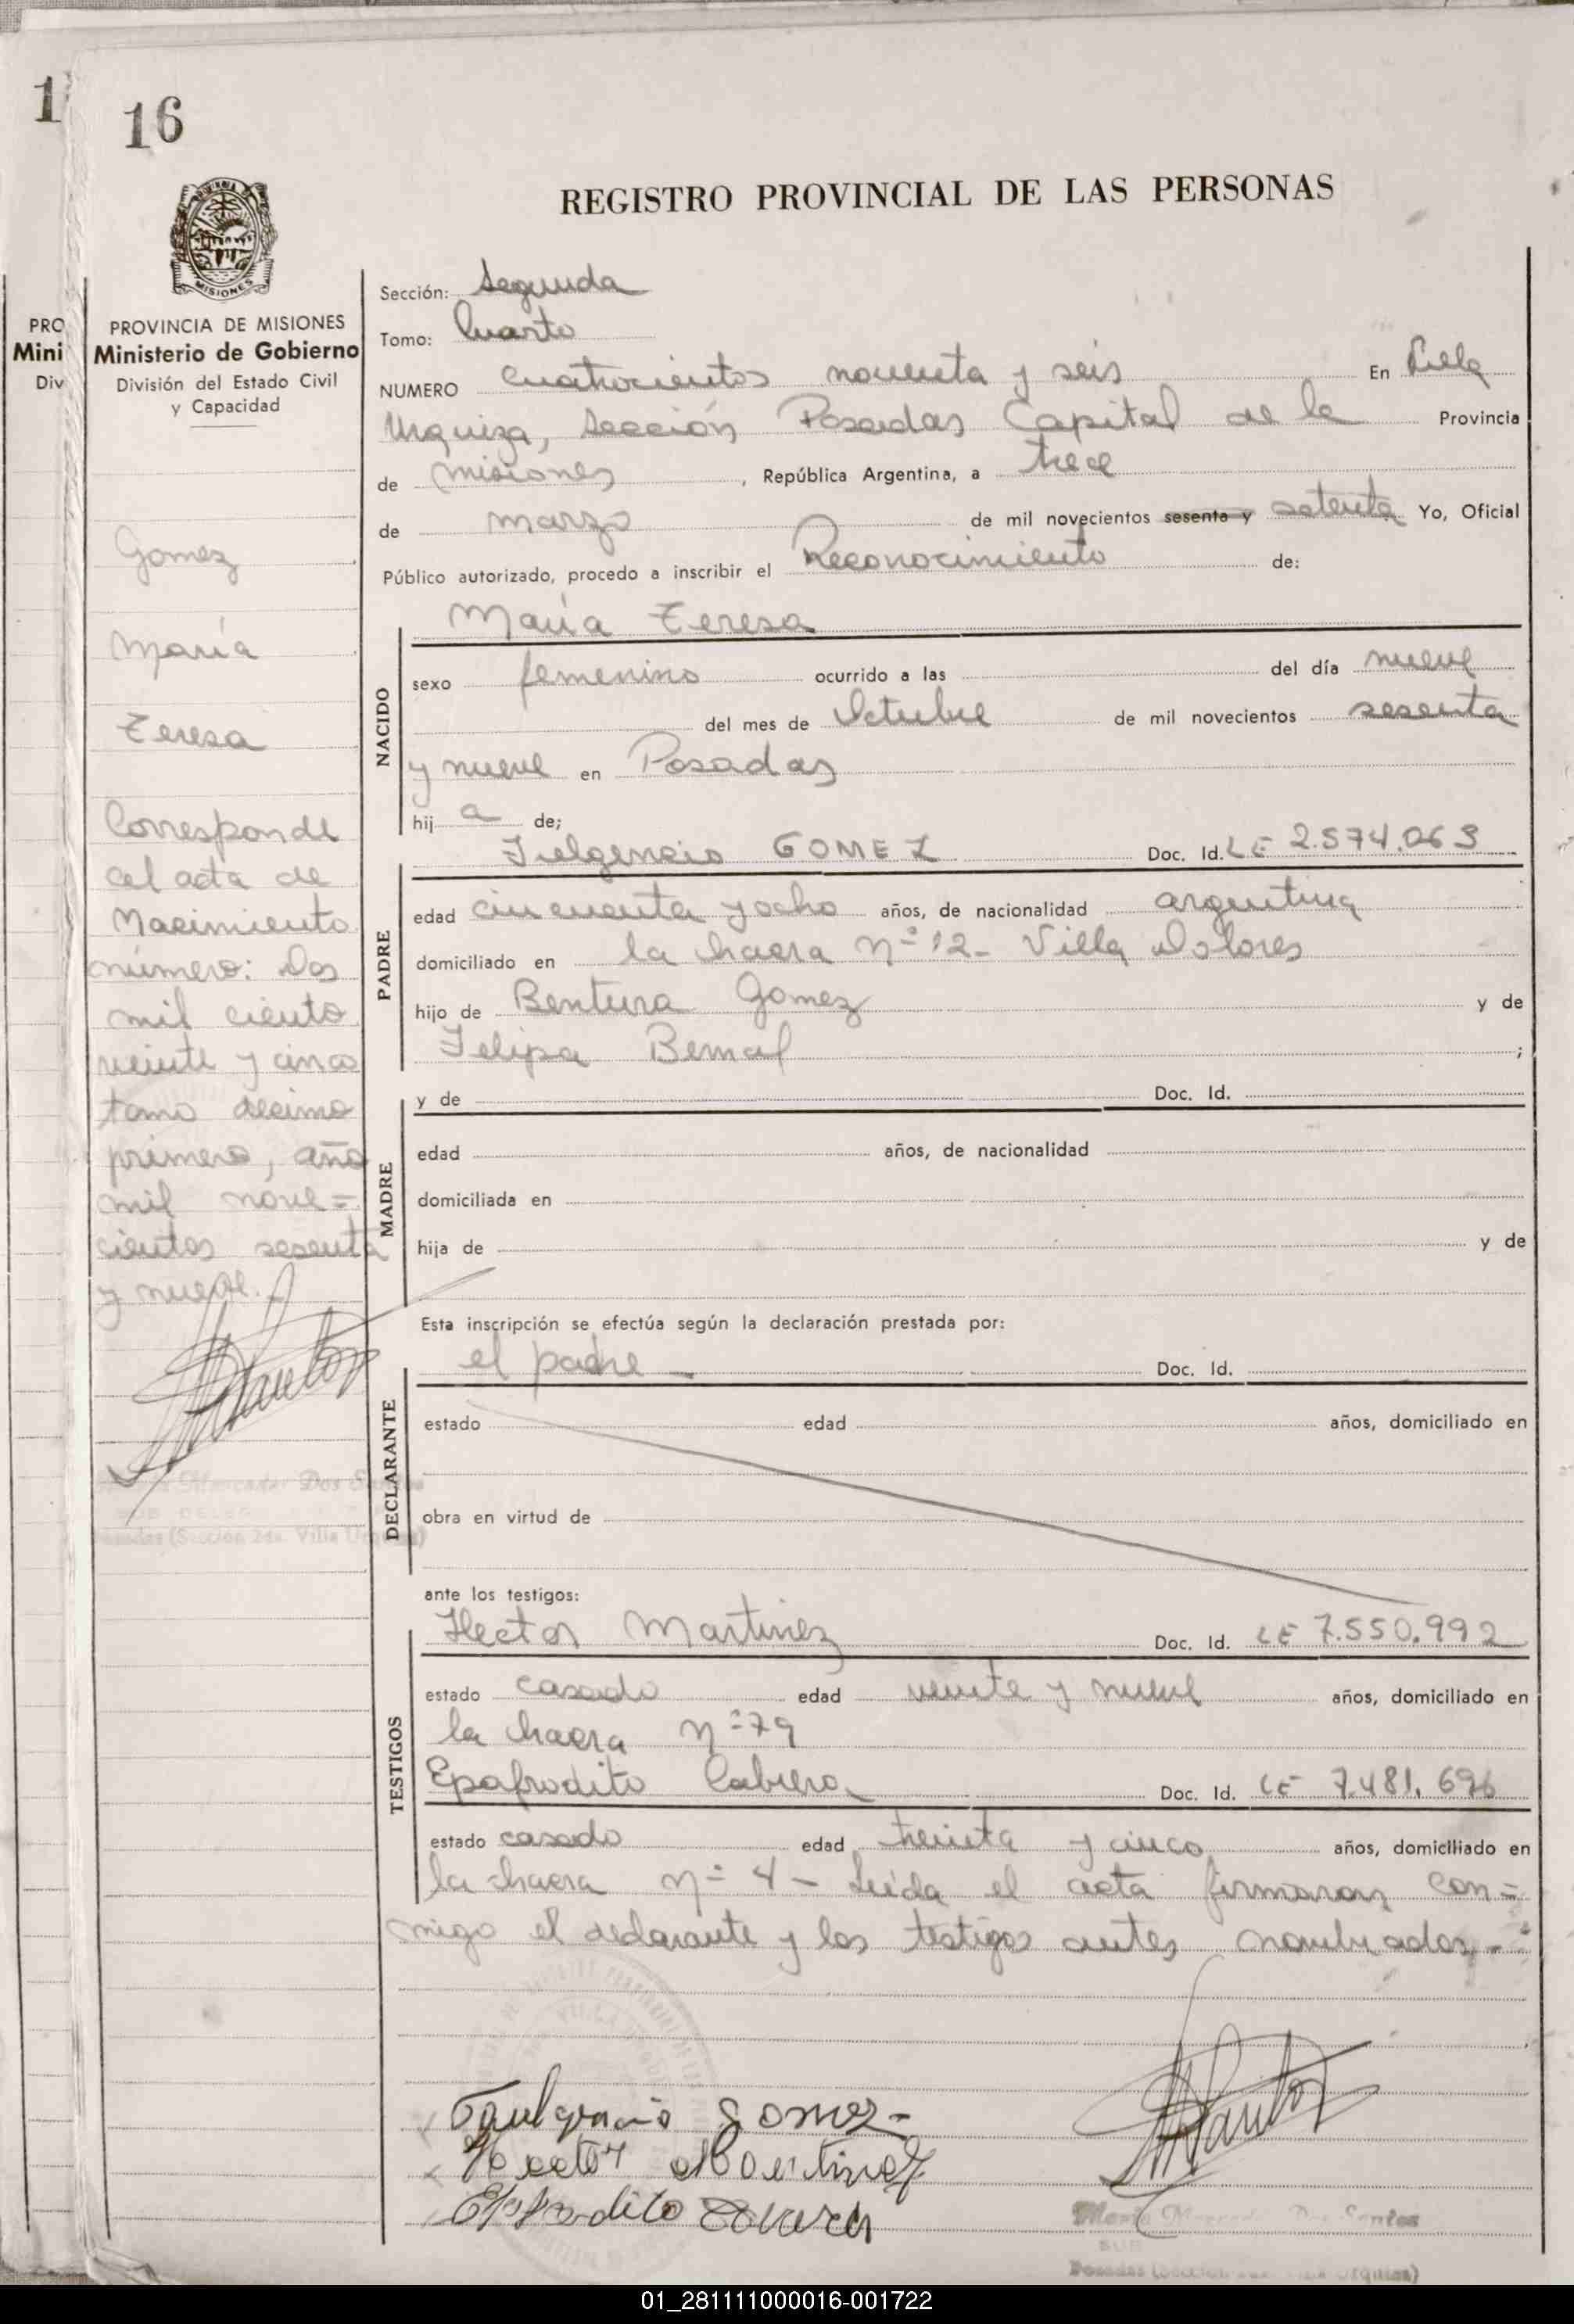 1
16
REGISTRO PROVINCIAL DE LAS PERSONAS
MISIONES
PRO
Mini
Div
PROVINCIA DE MISIONES
Ministerio de Gobierno
División del Estado Civil
y Capacidad
Gomez
María
Teresa
Corresponde
al acta de
Nacimiento
número: Dos
mil ciento
veinte y cinco
tomo decimo
primero, año
mil nove=
cientos sesenta
y nueve.-
Sección: Segunda
Tomo: Cuarto
NUMERO cuatrocientos noventa y seis En Villa
Urquiza, Sección Posadas Capital de la Provincia
de Misiones, República Argentina, a trece
de marzo de mil novecientos sesenta y setenta Yo, Oficial
Público autorizado, procedo a inscribir el Reconocimiento de:
NACIDO
María Teresa
sexo femenino ocurrido a las del día nueve
del mes de Octubre de mil novecientos sesenta
y nueve en Posadas
hij a de;
PADRE
Fulgencio GOMEZ Doc. Id. LE 2.574.063
edad cincuenta y ocho años, de nacionalidad argentina
domiciliado en la chacra nº 12- Villa Dolores
hijo de Bentura Gomez y de
Felipa Bernal ;
MADRE
y de Doc. Id.
edad años, de nacionalidad
domiciliada en
hija de y de
Esta inscripción se efectúa según la declaración prestada por:
DECLARANTE
el padre - Doc. Id.
estado edad años, domiciliado en
obra en virtud de
ante los testigos:
TESTIGOS
Hector Martinez Doc. Id. LE 7.550.992
estado casado edad veinte y nueve años, domiciliado en
la chacra nº 79
Epafrodito Cabrera Doc. Id. LE 7.481.696
estado casado edad treinta y cinco años, domiciliado en
la chacra nº 4 - Leída el acta firmaron con=
migo el declarante y los testigos antes nombrados.-
Gomez-
Dos Santos
01_281111000016-001722